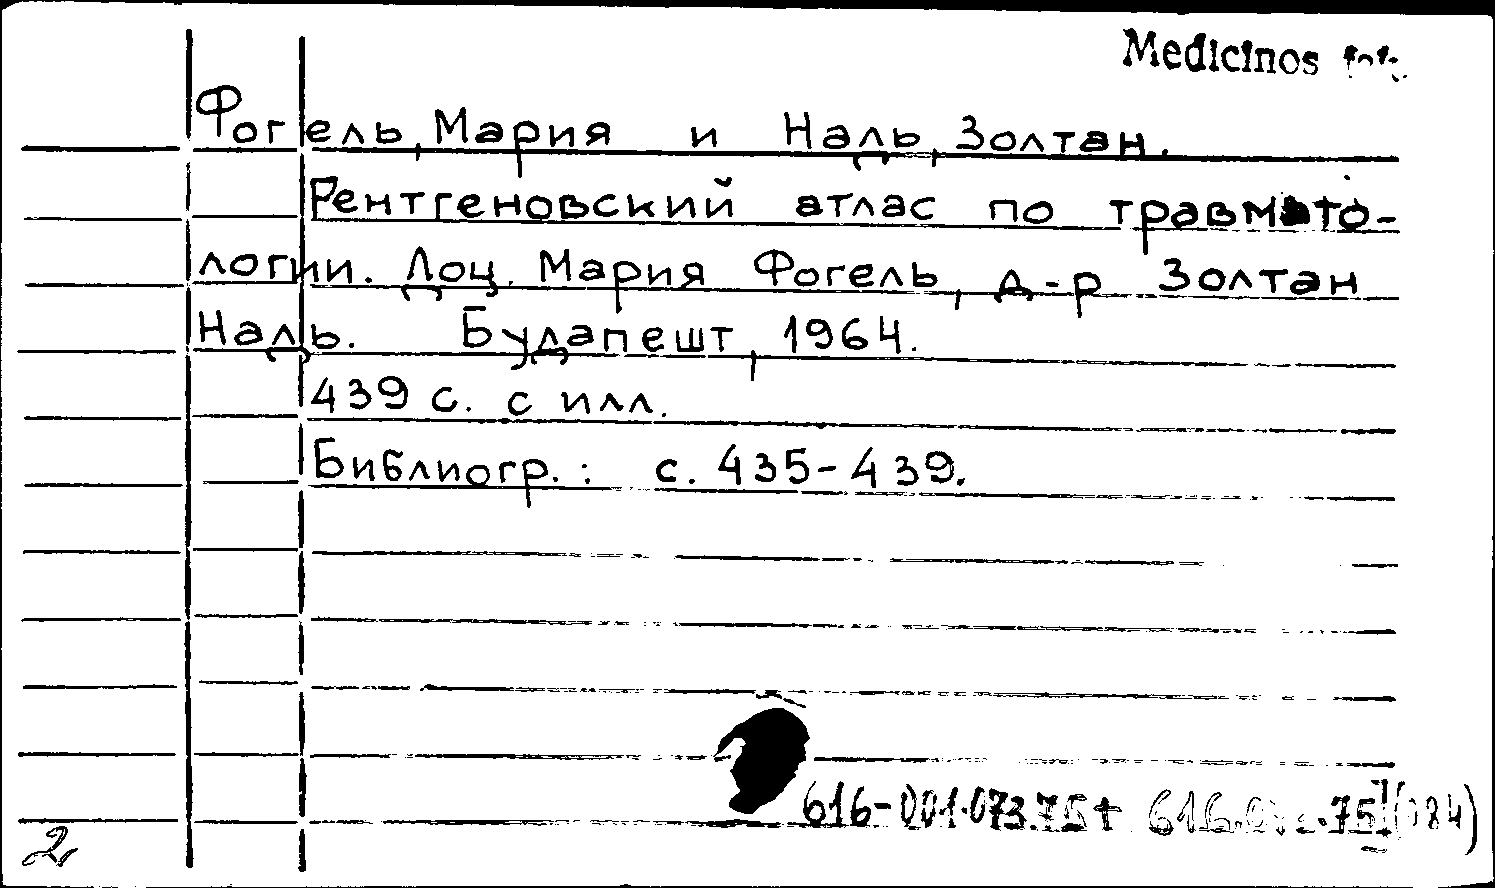 Medicinos
Фогель, Мария и Надь, Золтан.
Рентгеновский атлас по травмато-
логии. Доц. Мария Фогель, д-р Золтан
Надь. Будапешт, 1964.
439 с. с илл.
Библиогр.: с. 435-439.
616-001.073.75+
2